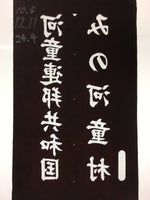 10.5
12.11
24.4
河童連邦共和国
みの河童村